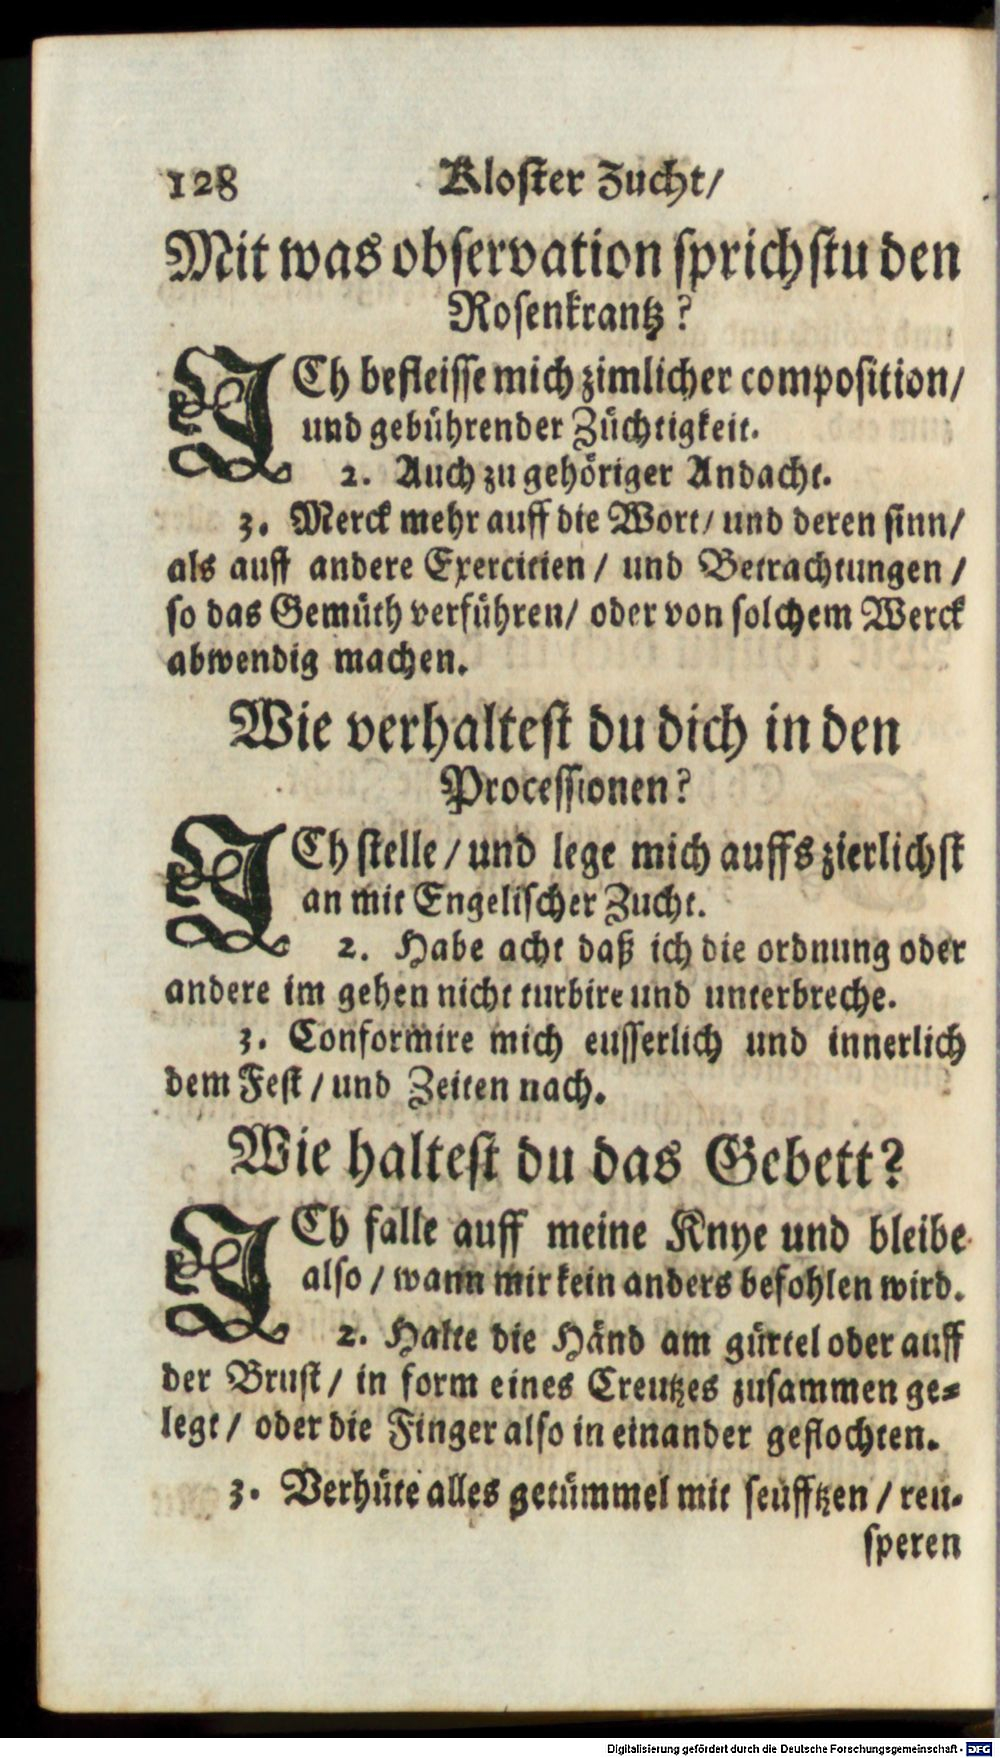 128 Kloster Zucht/
Mit was observation sprichstu den
Rosenkrantz?
ICh befleisse mich zimlicher composition/
und gebührender Züchtigkeit.
2. Auch zu gehöriger Andacht.
3. Merck mehr auff die Wort/ und deren sinn/
als auff andere Exercitien / und Betrachtungen /
so das Gemüth verführen/ oder von solchem Werck
abwendig machen.
Wie verhaltest du dich in den
Processionen?
ICh stelle / und lege mich auffs zierlichst
an mit Engelischer Zucht.
2. Habe acht daß ich die ordnung oder
andere im gehen nicht turbire und unterbreche.
3. Conformire mich eusserlich und innerlich
dem Fest / und Zeiten nach.
Wie haltest du das Gebett?
ICh falle auff meine Knye und bleibe
also / wann mir kein anders befohlen wird.
2. Halte die Händ am gürtel oder auff
der Brust / in form eines Creutzes zusammen ge-
legt / oder die Finger also in einander geflochten.
3. Verhüte alles getümmel mit seufftzen / reu-
speren
Digitalisierung gefördert durch die Deutsche Forschungsgemeinschaft - DFG